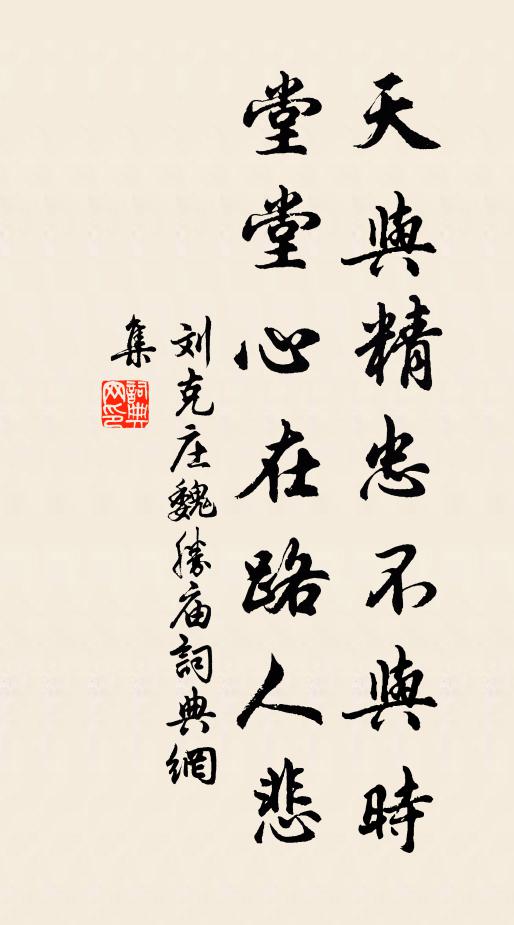 天與精忠不與時
堂堂心在路人悲
刘克庄魏勝庙詞典網
集
詞典
网印